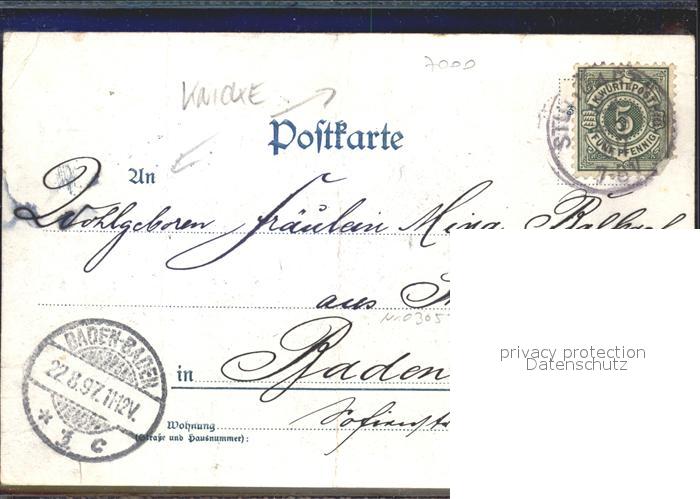 7000
KNICKE
Postkarte
K. WÜRTT. POST
5
FÜNF PFENNIG
STUTTGART
An
Wohlgeboren Fräulein Mina
aus
No 0305
privacy protection
Datenschutz
BADEN-BADEN
22.8.97.11-12V.
* 1 c
in Baden
Wohnung
(Straße und Hausnummer):
Sofienstr